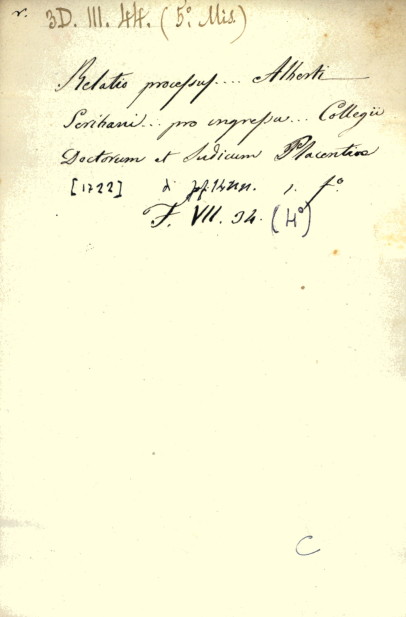 v. 3D. III. 44. (5º Mis.)
Relatio processus.... Alberti
Scribani... pro ingressu... Collegii
Doctorum et Judicum Placentiae
[1722] di pp. in fº.
F. VII. 34. (4º)
C